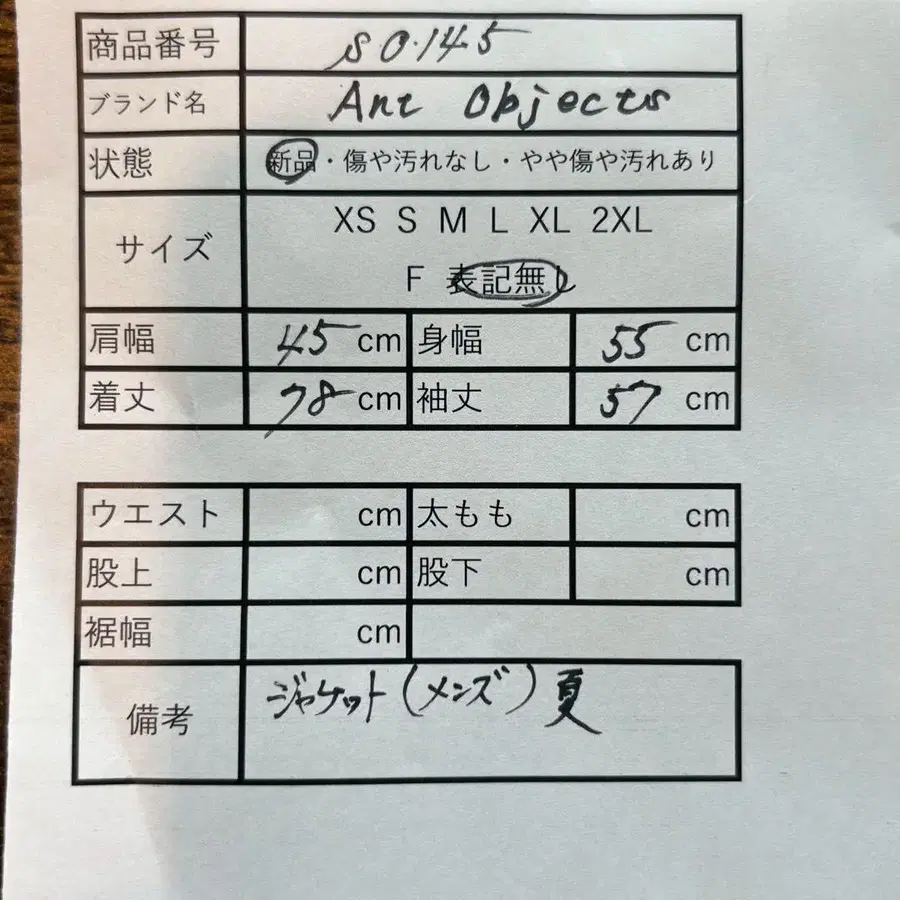 商品番号 SO.145
ブランド名 Ant Objects
状態 新品・傷や汚れなし・やや傷や汚れあり
サイズ XS S M L XL 2XL
F 表記無し
肩幅 45 cm 身幅 55 cm
着丈 78 cm 袖丈 57 cm
ウエスト cm 太もも cm
股上 cm 股下 cm
裾幅 cm
備考 ジャケット(メンズ)夏